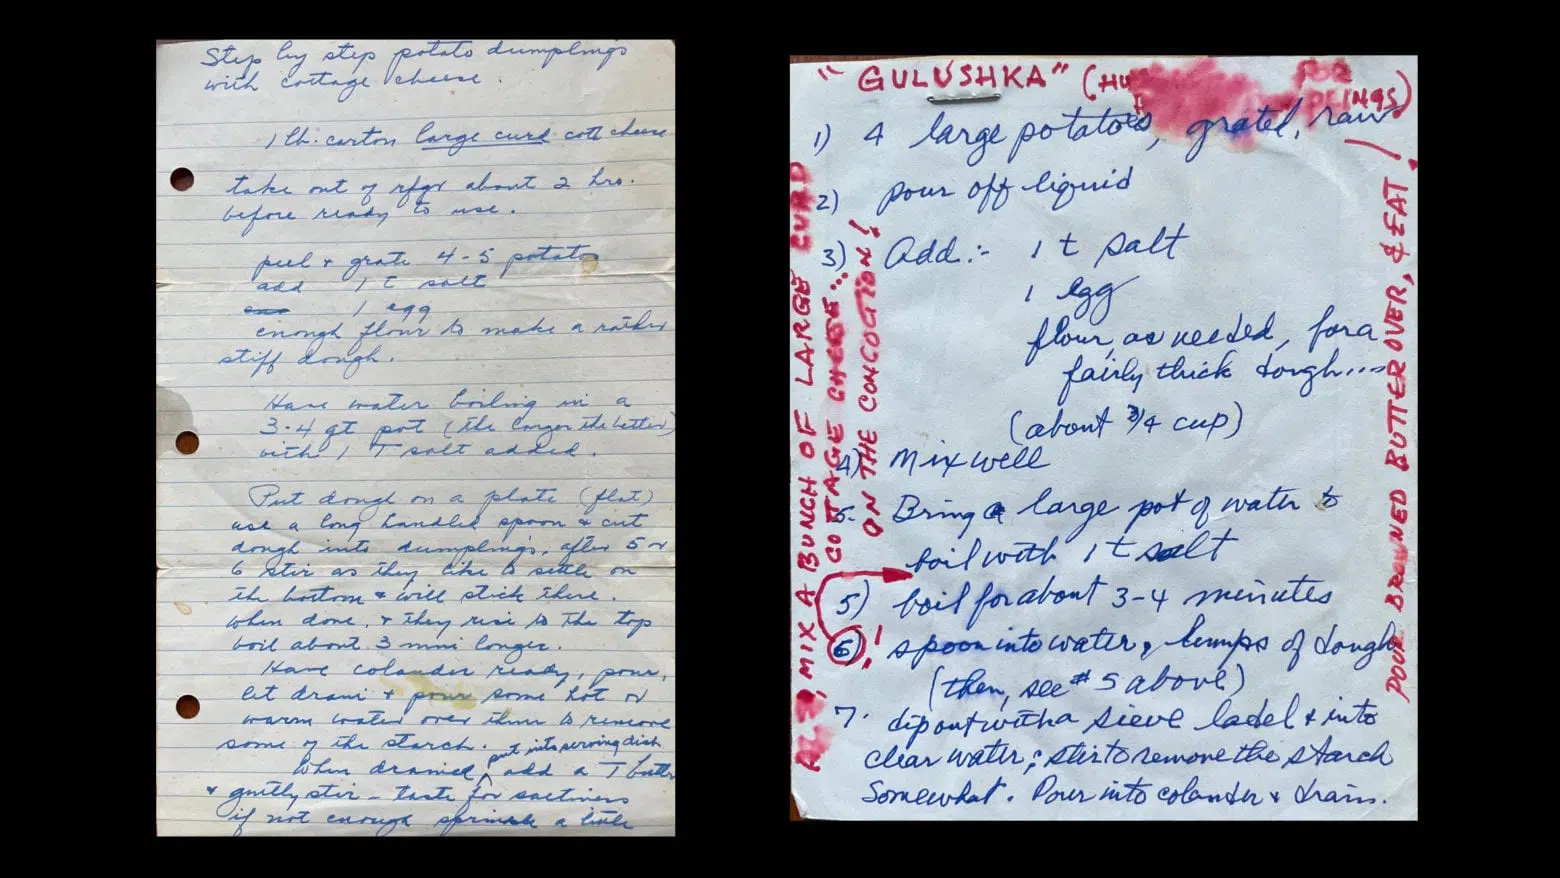 Step by step potato dumplings
with cottage cheese.
1 lb. carton large curd cott cheese
take out of rfgr about 2 hrs.
before ready to use.
peel + grate 4-5 potatoes
add 1 t salt
1 egg
enough flour to make a rather
stiff dough.
Have water boiling in a
3-4 qt pot (the larger the better)
with 1 T salt added.
Put dough on a plate (flat)
use a long handled spoon & cut
dough into dumplings, after 5 or
6 stir as they like to settle on
the bottom & will stick there.
When done, & they rise to the top
boil about 3 min longer.
Have colander ready, pour,
let drain & pour some hot or
warm water over them to remove
some of the starch.
When drained, put into serving dish add a T butter
& gently stir - taste for saltiness
if not enough sprinkle a little
"GULUSHKA" (HU
1) 4 large potatoes, grated, raw
2) pour off liquid
3) Add:- 1 t salt
1 egg
flour, as needed, for a
fairly thick dough...
(about 3/4 cup)
4) Mix well
5. Bring a large pot of water to
boil with 1 t salt
5) boil for about 3-4 minutes
6)! spoon into water, lumps of dough
(then, see #5 above)
7. dip out with a sieve ladel & into
clear water; stir to remove the starch
somewhat. Pour into colander & drain.
MIX A BUNCH OF LARGE CURD
COTTAGE CHEESE...
ON THE CONCOCTION!
POUR BROWNED BUTTER OVER, & EAT!